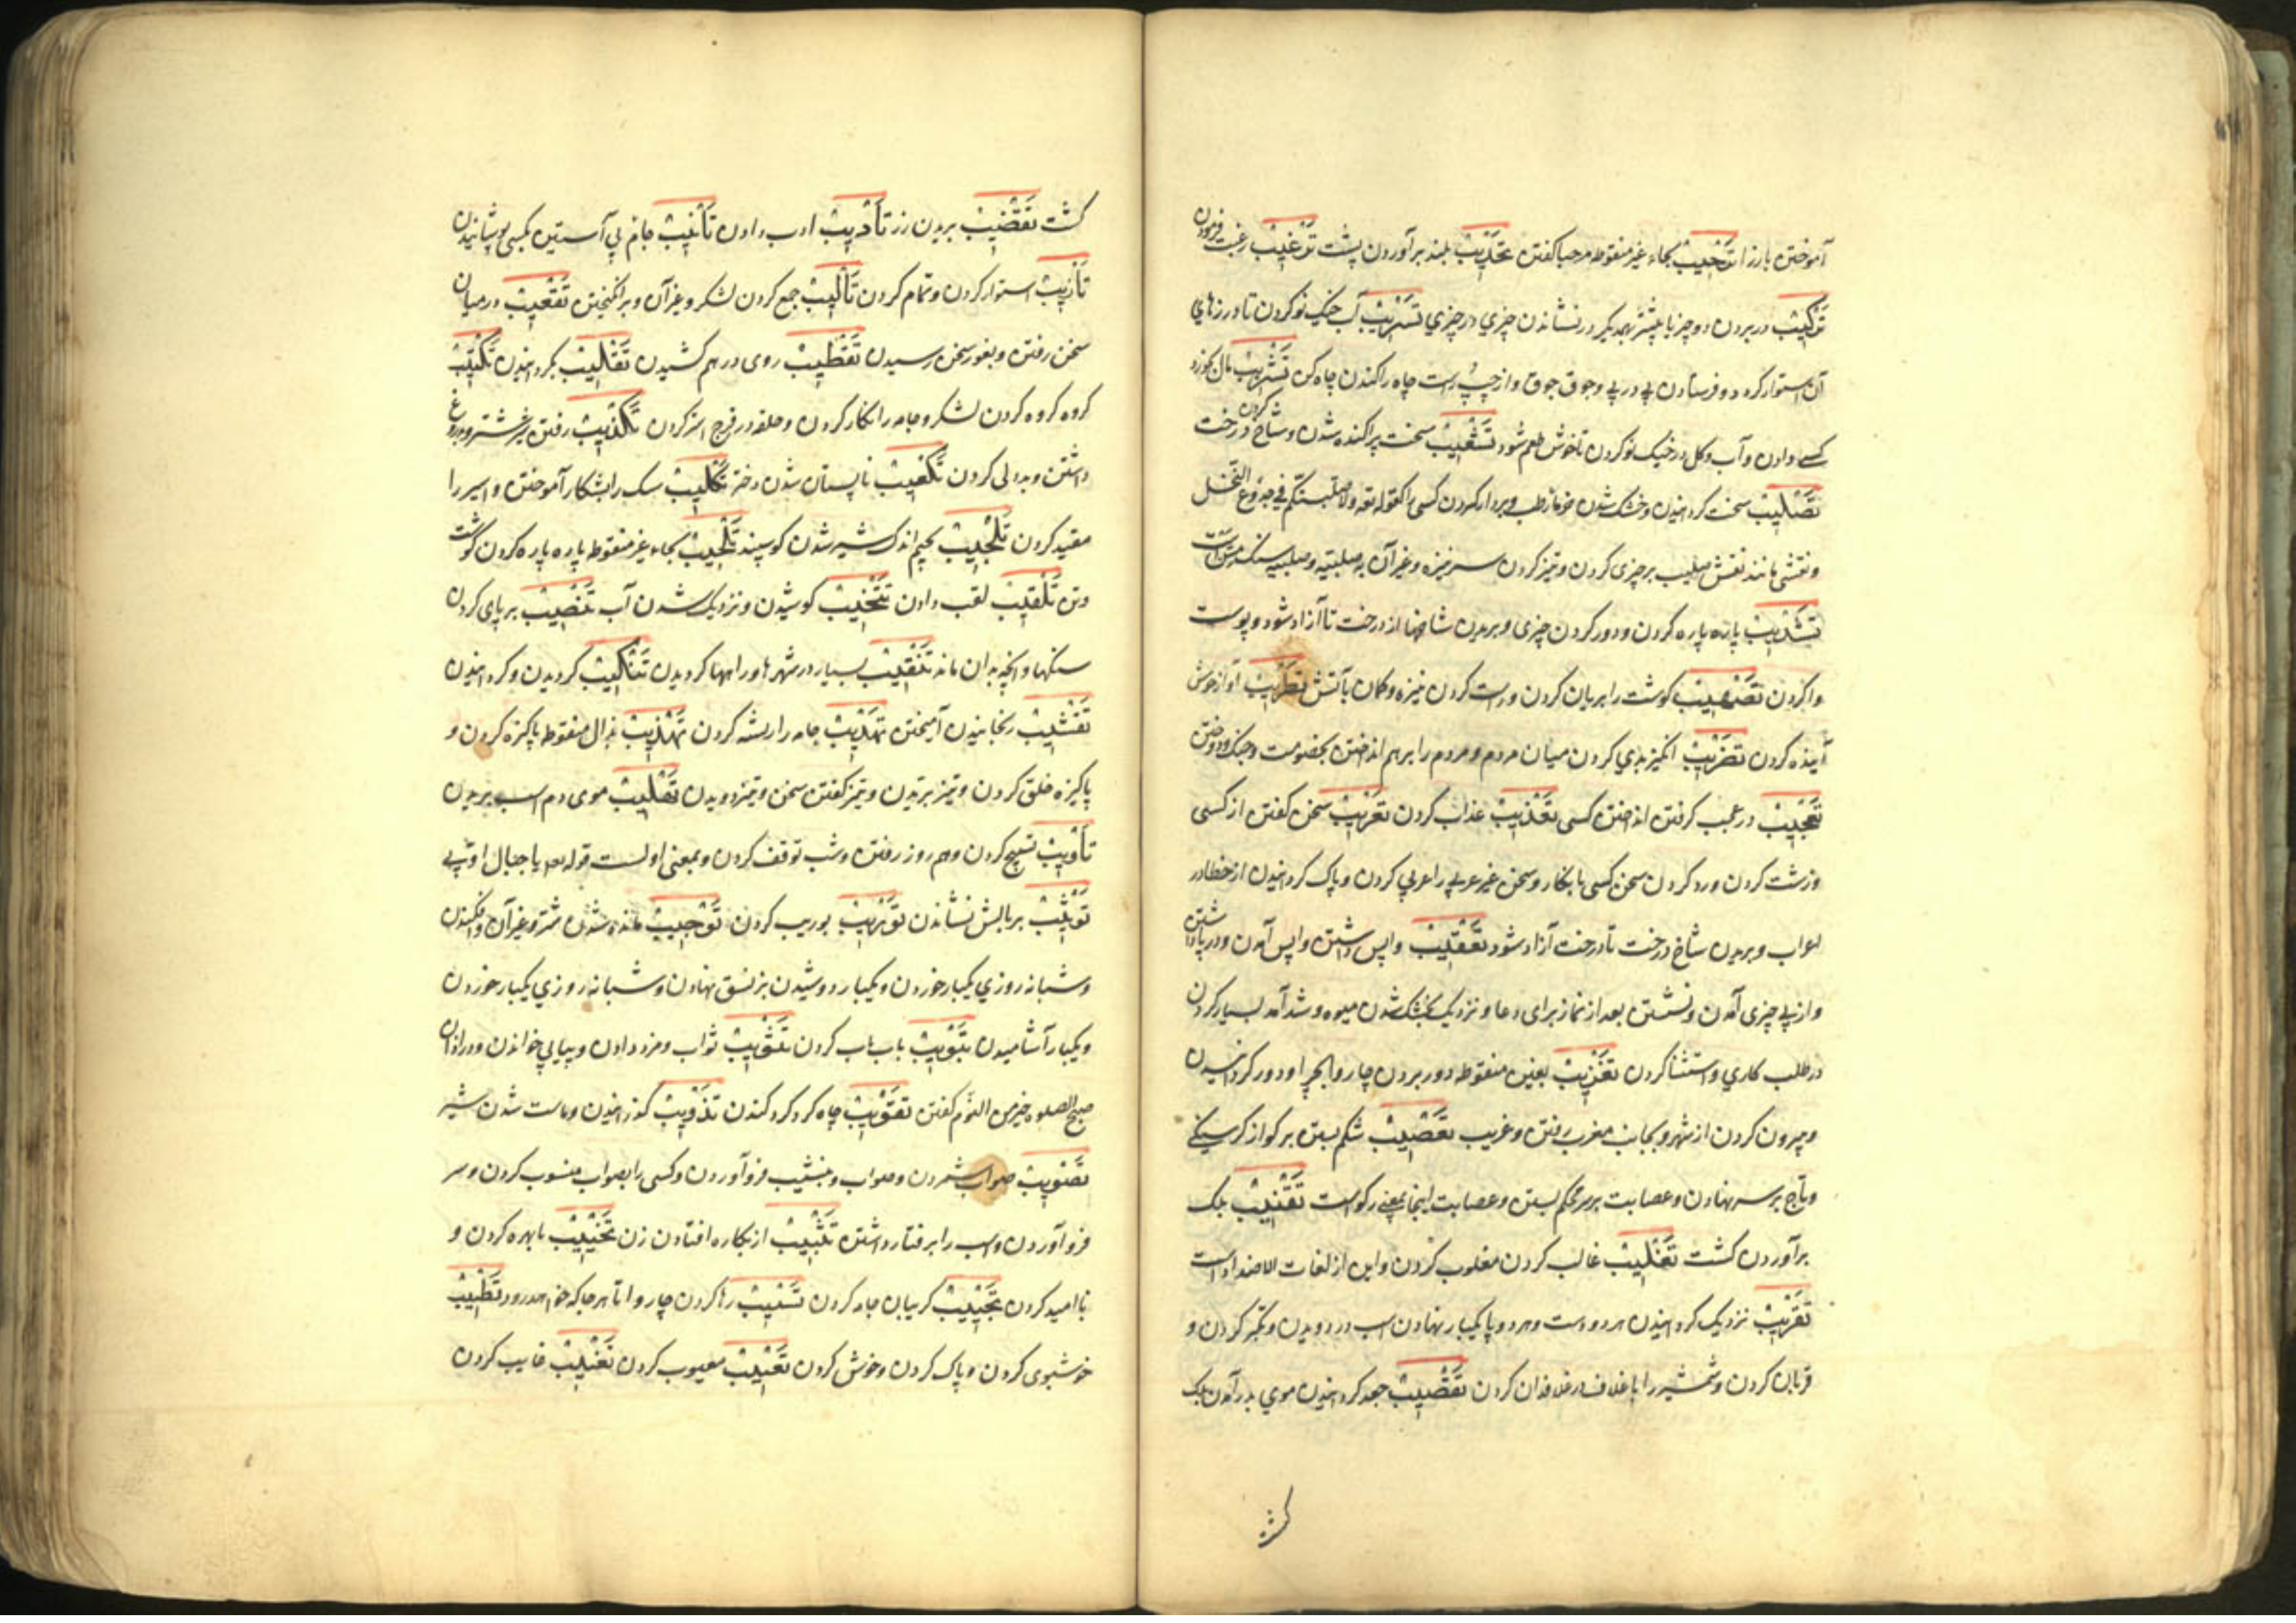 آموختن بارزا ترحیب بحاء غیر منقوطه مرحبا کفتن تحدیب بلند برآوردن پشت ترغیب رغبت فرمودن
ترکیب در بردن دو چیز با یکدیگر در نشاندن چیزی در چیزی تسریب آب خیک نو کردن تا درزهای
آن استوار کردد و فرستادن پی در پی و جوق جوق و از چپ و راست چاه را کندن چاه کن تشریب مال بخورد
کسی دادن و آب و کل در خیک نو کردن تا خوش طعم شود تشعیب سخت پراکنده شدن و شاخ کردن درخت
تصلیب سخت کردانیدن و خشک شدن خرما رطب و بردار کردن کسی را کقوله تعه ولاصلبنکم فی جذوع النخل
و نقشی مانند نقش صلیب بر چیزی کردن و تیز کردن سر نیزه و غیر آن به صلبیه و صلبیه سنک فسان است
تشذیب پاره پاره کردن و دور کردن چیزی و بریدن شاخها از درخت تا آزاد شود و پوست
واکردن تصهیب کوشت را بریان کردن و راست کردن نیزه و کمان بآتش تطریب آواز خوش
آینده کردن تضریب انکیز بدی کردن میان مردم و مردم را بر هم انداختن بخصومت و جنک و دوختن
تعجیب در عجب کرفتن انداختن کسی تعذیب عذاب کردن تعریب سخن کفتن از کسی
و زشت کردن و رد کردن سخن کسی بانکار و سخن غیر عربی را عربی کردن و پاک کردانیدن از خطا در
اعراب و بریدن شاخ درخت تا درخت آزاد شود تعقیب واپس داشتن و واپس آمدن و در پاداشتن
و از پی چیزی آمدن و نشستن بعد از نماز برای دعا و نزدیک بخشک شدن میوه و شد آمد بسیار کردن
در طلب کاری و استثنا کردن تغریب بغین منقوطه دور بردن چاروا بچرا و دور کردانیدن
و بیرون کردن از شهر و بجانب مغرب رفتن و غریب تعصیب شکم بستن بر کوار کرسنکی
و تاج بر سر نهادن و عصابت بر سر محکم بستن و عصابت اینجا بمعنی رکوست تقنیب بلک
برآوردن کشت تغلیب غالب کردن مغلوب کردن و این از لغات الاضداد است
تقریب نزدیک کردانیدن هر دو دست و هر دو پا یکبار نهادن اسب در دویدن و تکبر کردن و
قربان کردن و شمشیر را با غلاف در غلافدان کردن تقصیب جعد کردانیدن موی بدر آمدن بلک
کشت
کشت تقضیب بریدن رز تأدیب ادب دادن تأتیب جامه بی آستین بکسی پوشانیدن
تأریب استوار کردن و تمام کردن تألیب جمع کردن لشکر و غیر آن و برانکیختن تقعیب در میان
سخن رفتن و بغور سخن رسیدن تقطیب روی در هم کشیدن تقلیب بکردانیدن تکتیب
کروه کروه کردن لشکر و جامه را نکار کردن و حلقه در فرج استر کردن تکذیب رفتن شیر شتر و بدروغ
داشتن و بددلی کردن تکعیب نارپستان شدن دختر تکلیب سک را بشکار آموختن و اسیر را
مقید کردن تلجیب بجیم اندک شیر شدن کوسپند تلحیب بحاء غیر منقوطه پاره پاره کردن کوشت
وتن تلقیب لقب دادن تنحیب کوشیدن و نزدیک شدن آب تنصیب برپای کردن
سنکها و آنچه بدان ماند تنقیب بسیار در شهرها و راهها کردیدن تنکیب کردیدن و کردانیدن
تقشیب رنجانیدن آمیختن تهدیب جامه را ریشه کردن تهذیب بذال منقوطه پاکیزه کردن و
پاکیزه خلق کردن و تیز پریدن و تیز کفتن سخن و تیز دویدن تهلیب موی دم اسب بریدن
تأویب تسبیح کردن و هم روز رفتن و شب توقف کردن و بمعنی اولست قوله تعه یا جبال اوبی
توثیب بر بالش نشاندن توریب بوریب کردن توجیب مانده شدن شتر و غیر آن و افکندن
و شبانه روزی یکبار خوردن و یکبار دوشیدن بر نسق نهادن و شبانه روزی یکبار خوردن
و یکبار آشامیدن تبویب باب باب کردن تثویب ثواب و مزد دادن و پیاپی خواندن و در اذان
صبح الصلوه خیر من النوم کفتن تقویب چاه کرد کرد کندن تذویب کدازانیدن و ماست شدن شیر
تصویب صواب شمردن و صواب و بنشیب فرو آوردن و کسی را بصواب منسوب کردن و سر
فرو آوردن و اسب را بر رفتار داشتن تثییب از بکاره افتادن زن تخییب نابهره کردن و
ناامید کردن تجییب کریبان جامه کردن تسییب رها کردن چاروا تا هر جا که خواهد رود تطییب
خوشبوی کردن و پاک کردن و خوش کردن تعییب معیوب کردن تغییب غایب کردن